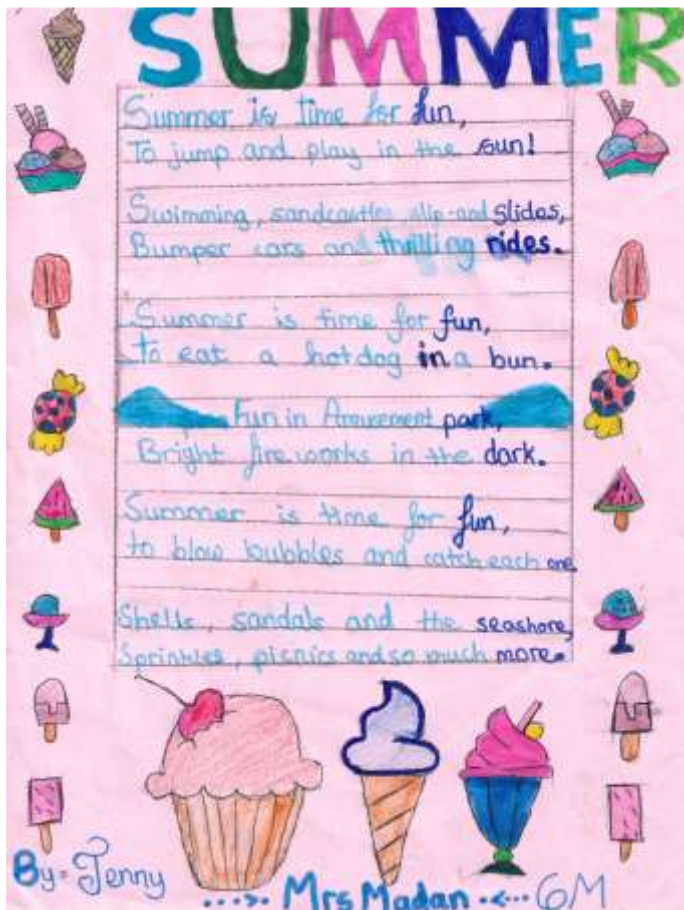 SUMMER
Summer is time for fun,
To jump and play in the sun!
Swimming, sandcastles slip-and slides,
Bumper cars and thrilling rides.
Summer is time for fun,
to eat a hotdog in a bun.
Fun in Amusement park,
Bright fireworks in the dark.
Summer is time for fun,
to blow bubbles and catch each one
Shells, sandals and the seashore,
Sprinkles, picnics and so much more.
By= Jenny
Mrs Madan
6M